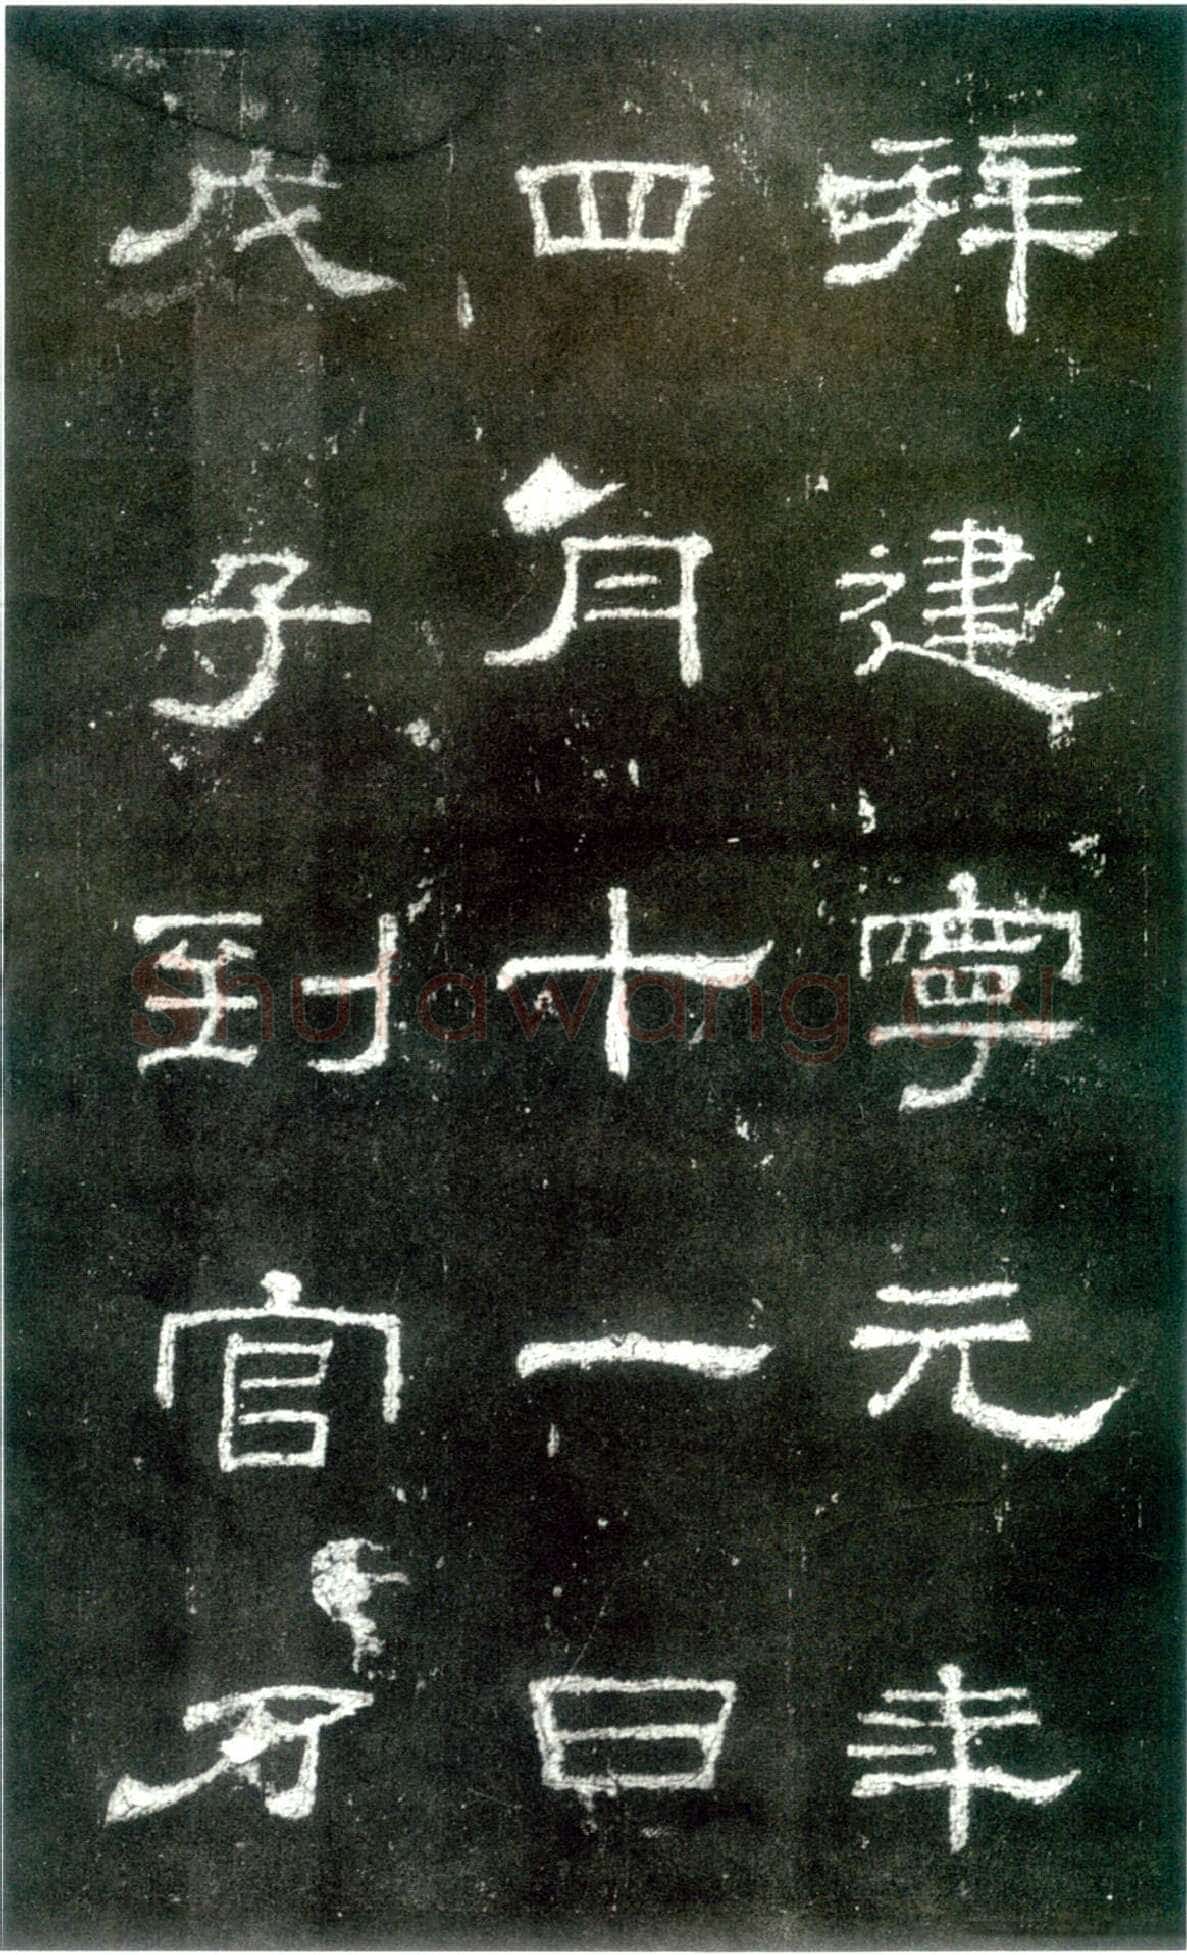 拜建寧元年
四月十一日
戊子到官乃
Shufawang.CN